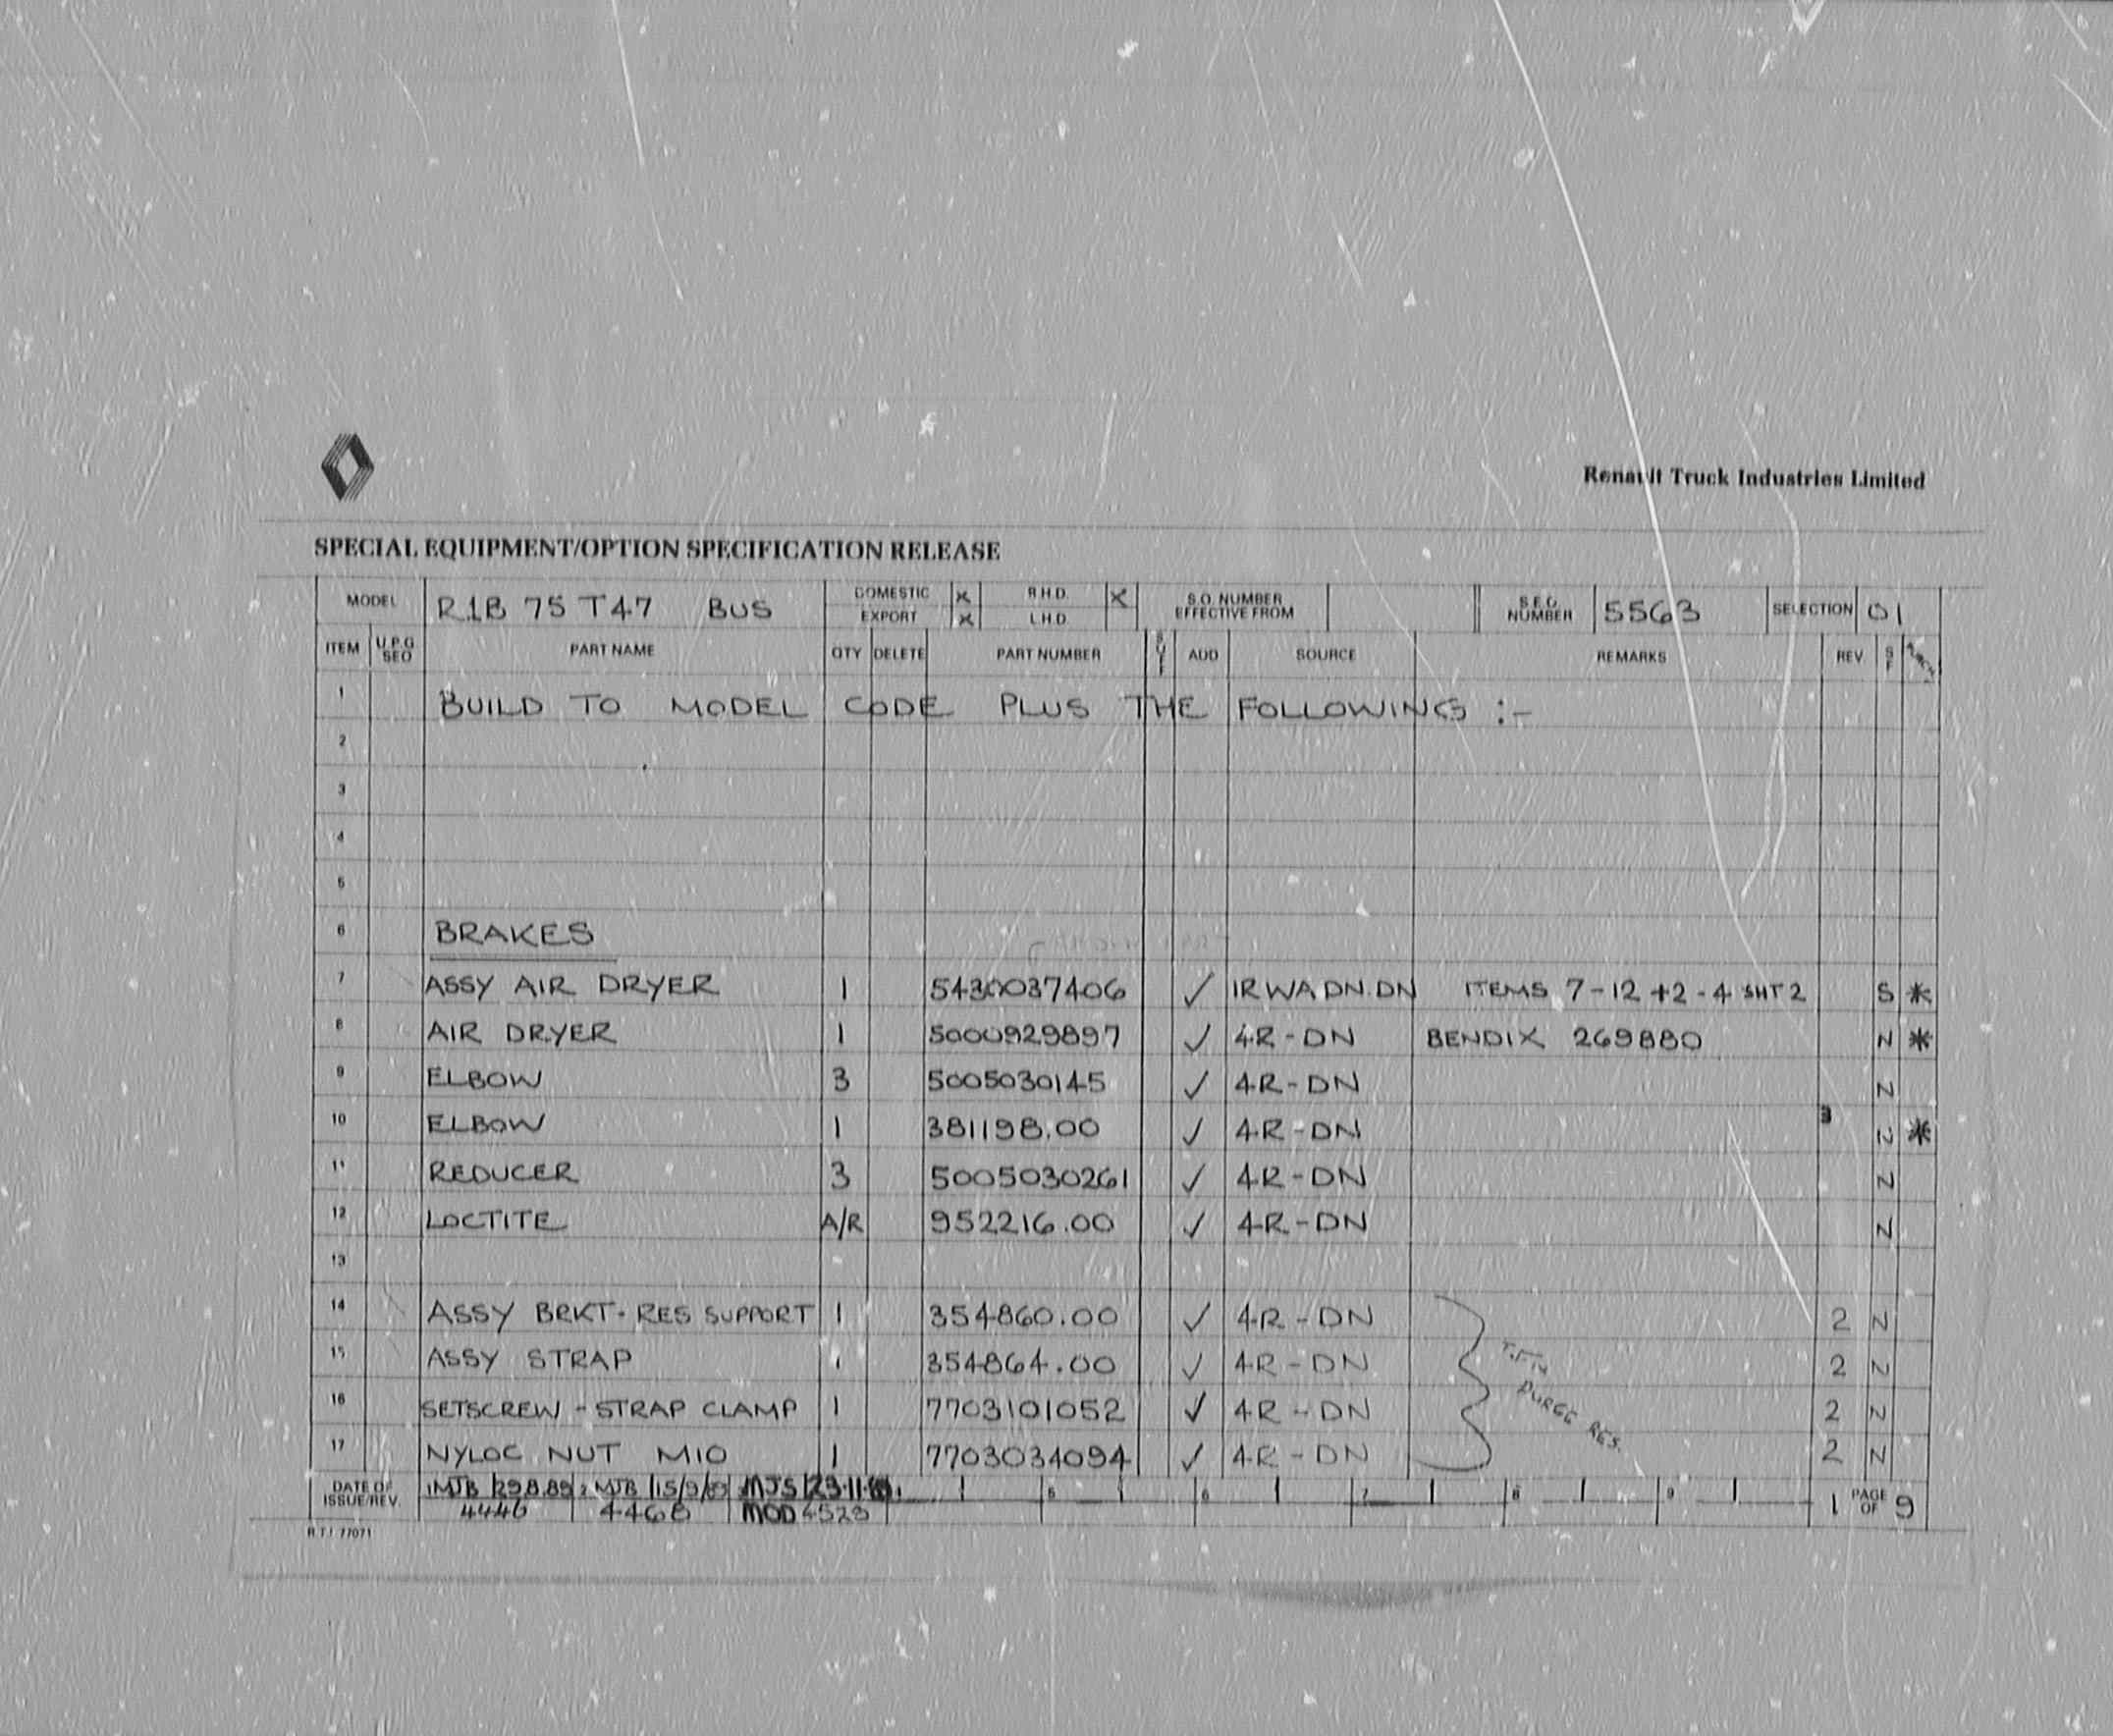 Renault Truck Industries Limited
SPECIAL EQUIPMENT/OPTION SPECIFICATION RELEASE
MODEL R1B 75 T47 BUS DOMESTIC X EXPORT X R.H.D. X L.H.D. S.O. NUMBER EFFECTIVE FROM S.E.O. NUMBER 5563 SELECTION 01
ITEM U.P.G SEO PART NAME QTY DELETE PART NUMBER ADD SOURCE REMARKS REV S F
1 BUILD TO MODEL CODE PLUS THE FOLLOWING :-
2
3
4
5
6 BRAKES
7 ASSY AIR DRYER 1 5430037406 ✓ IRWADN.DN ITEMS 7-12 +2-4 SHT 2 S *
8 AIR DRYER 1 5000929897 ✓ 4R-DN BENDIX 269880 N *
9 ELBOW 3 5005030145 ✓ 4R-DN N
10 ELBOW 1 381198.00 ✓ 4R-DN 3 N *
11 REDUCER 3 5005030261 ✓ 4R-DN N
12 LOCTITE A/R 952216.00 ✓ 4R-DN N
13
14 ASSY BRKT-RES SUPPORT 1 354860.00 ✓ 4R-DN 2 N
15 ASSY STRAP 1 354864.00 ✓ 4R-DN 2 N
16 SETSCREW - STRAP CLAMP 1 7703101052 ✓ 4R-DN 2 N
17 NYLOC NUT M10 1 7703034094 ✓ 4R-DN 2 N
PURGE RES.
DATE OF ISSUE/REV. 1 MJB 29.8.89 2 MJB 15/9/89 MJS 23.11.89 5 6 7 8 9 1 PAGE OF 9
4446 4468 MOD 4523
R.T.I 77071